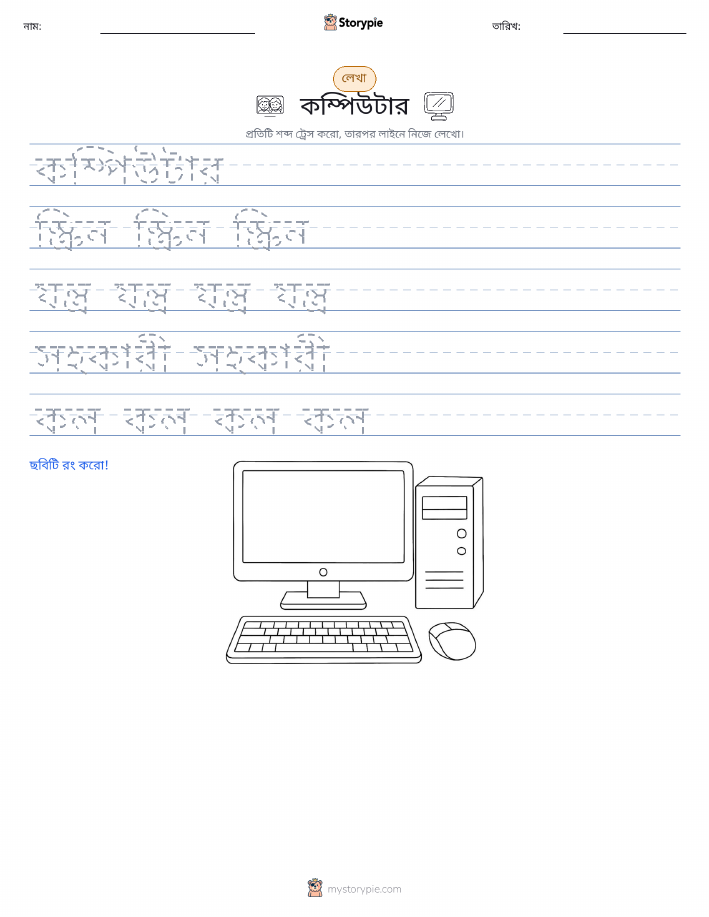 নাম:
Storypie
তারিখ:
লেখা
কম্পিউটার
প্রতিটি শব্দ ট্রেস করো, তারপর লাইনে নিজে লেখো।
কম্পিউটার
স্ক্রিন স্ক্রিন স্ক্রিন
যন্ত্র যন্ত্র যন্ত্র যন্ত্র
সহকারী সহকারী
কল কল কল কল
ছবিটি রং করো!
mystorypie.com